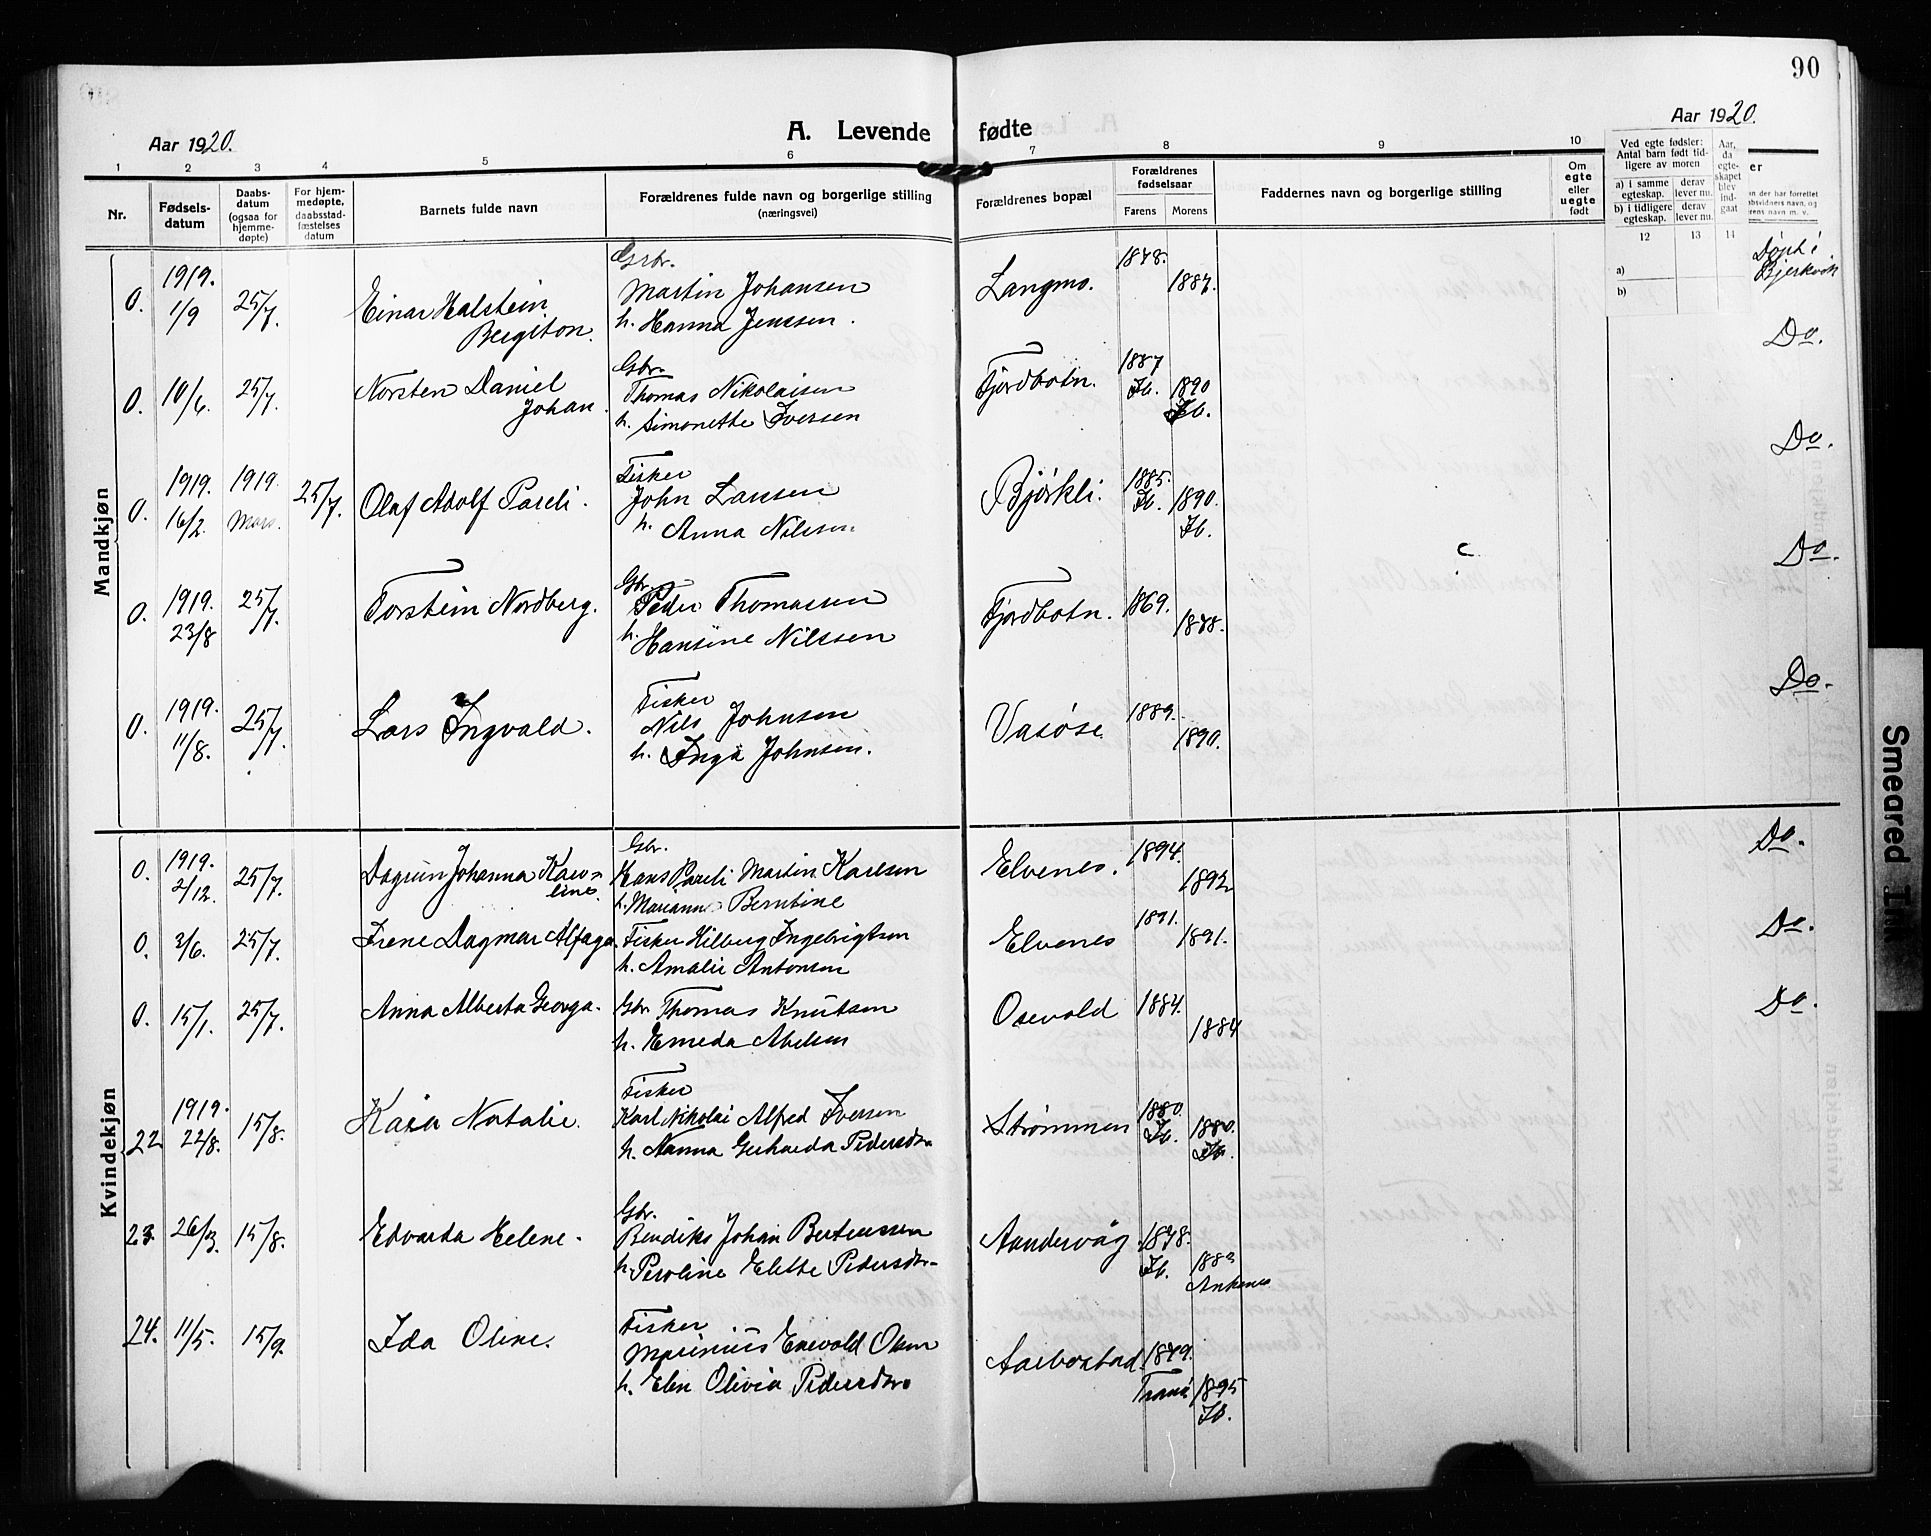 90
Aar 1920.
A. Levende
fødte
Aar 1920.
1 2 3 4 5 6 7 8 9 10
Nr.
Fødsels-
datum
Daabs-
datum
(ogsaa for
hjemme-
døpte)
For hjem-
medøpte,
daabsstad-
fæstelses
datum
Barnets fulde navn
Forældrenes fulde navn og borgerlige stilling
(næringsvei)
Forældrenes bopæl
Forældrenes
fødselsaar
Farens Morens
Faddernes navn og borgerlige stilling
Om
egte
eller
uegte
født
Ved egte fødsler:
Antal barn født tid-
ligere av moren
a) i samme
egteskap.
derav
lever nu.
b) i tidligere
egteskap.
derav
lever nu.
Aar,
da
egte-
skapet
blev
ind-
gaat
12 13 14
a)
b)
er
Mandkjøn
0. 1919. 1/9 25/7.
Einar Halstein
Bergston.
Gbr.
Martin Johansen
h. Hanna Jenssen.
Langmo. 1878. 1887.
Døpt i
Bjerkvik
0. 10/6. 25/7.
Norsten Daniel
Johan.
Gbr.
Thomas Nikolaisen
h. Simonette Iversen
Fjordbotn. 1887 Ib. 1890 Ib.
Do.
0. 1919. 16/2. 1919. Mars. 25/7.
Olaf Adolf Pareli.
Fisker
John Larsen
h. Anna Nilsen
Bjørkli. 1885. Ib. 1890. Ib.
Do.
0. 1919. 23/8 25/7.
Torstein Nordberg.
Gbr.
Peder Thomassen
h. Hansine Nilssen
Fjordbotn. 1869. 1878.
Do.
0. 1919. 11/8. 25/7.
Lars Ingvald.
Fisker
Nils Johnsen
h. Inga Johnsen.
Vasøse 1889. 1890.
Do.
Kvindekjøn
0. 1919. 2/12. 25/7.
Dagrun Johanna Karo-
line.
Gbr.
Hans Pareli Martin Karlsen
h. Marianne Berntine
Elvenes. 1894. 1892
Do.
0. 3/6. 25/7.
Irene Dagmar Alfaga.
Fisker Hilberg Ingebrigtsen
h. Amalie Antonsen
Elvenes 1891. 1891.
Do.
0. 15/1. 25/7.
Anna Alberta Georga.
Gbr Thomas Knutsen
h. Emeda Abelsen
Osevold 1884. 1884
Do.
22 1919. 22/8. 15/8.
Kaia Natalie.
Fisker
Karl Nikolai Alfred Iversen
h. Nanna Gerharda Pedersdr.
Strømmen 1880. Ib. 1880. Ib.
23. 26/3. 15/8.
Edvarda Helene.
Gbr.
Bendiks Johan Berteussen
h. Peroline Elette Pedersdr.
Aandervåg 1878. Ib. 1883 Ankenes
24. 11/5. 15/9.
Ida Oline.
Fisker
Marinius Enevold Olsen
h. Elen Olivia Pedersdr.
Aarbostad. 1879. Tranø 1895 Ib.
Smeared Ink